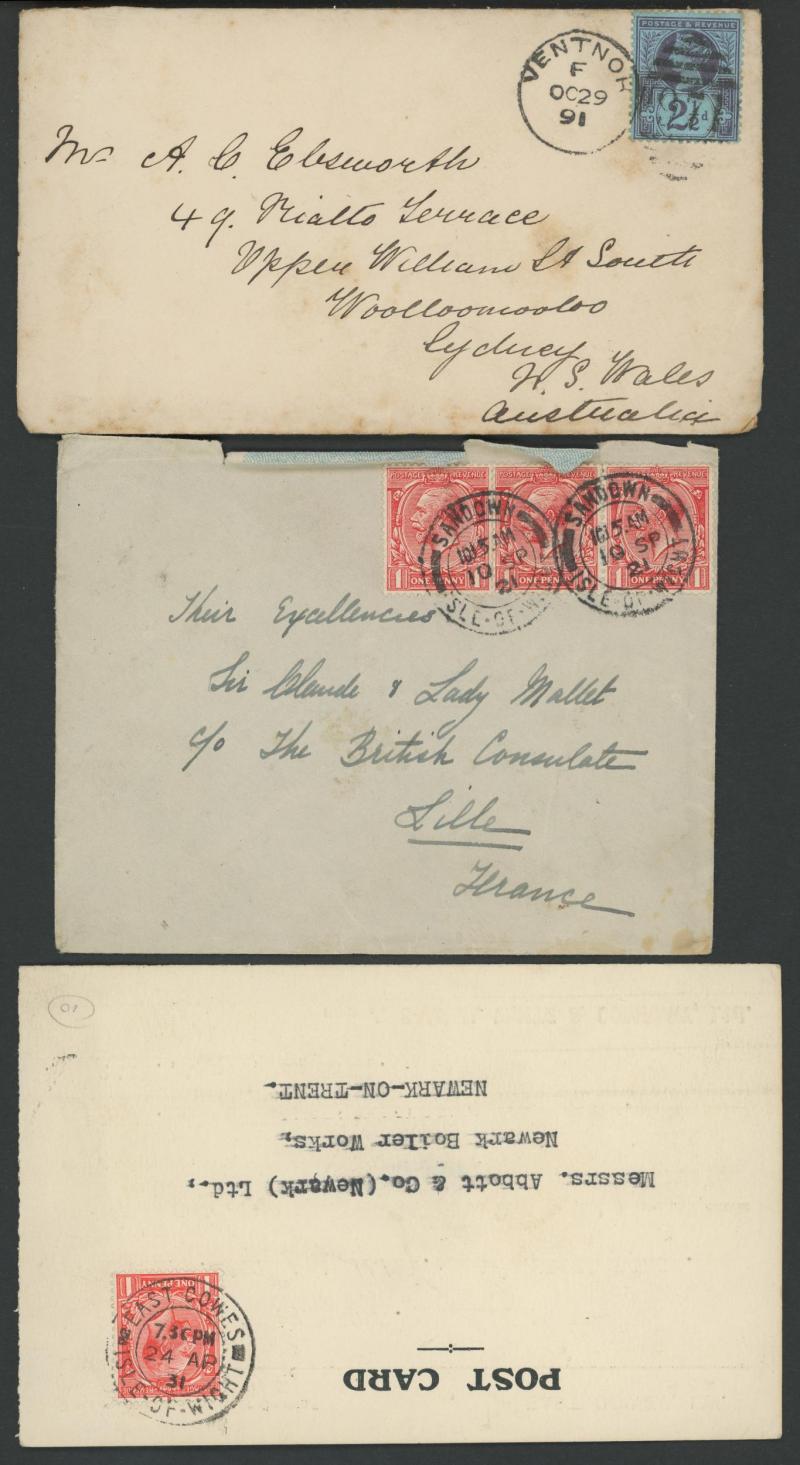 VENTNOR
F
OC 29
91
POSTAGE & REVENUE
2½d
Mr A. C. Ebsworth
49. Rialto Terrace
Upper William St South
Woolloomooloo
Sydney
N. S. Wales
Australia
POSTAGE REVENUE
POSTAGE REVENUE
1 ONE PENNY 1
ONE PENNY
1 ONE PENNY 1
SANDOWN
10.15 AM
10 SP
21
ISLE-OF-WIGHT
SANDOWN
10.15 AM
10 SP
21
ISLE-OF-WIGHT
Their Excellencies
Sir Claude & Lady Mallet
c/o The British Consulate
Lille
France
POST CARD
1 ONE PENNY 1
EAST COWES
7.30 PM
24 AP
31
ISLE-OF-WIGHT
Messrs. Abbott & Co.(Newark) Ltd.,
Newark Boiler Works,
NEWARK-ON-TRENT.